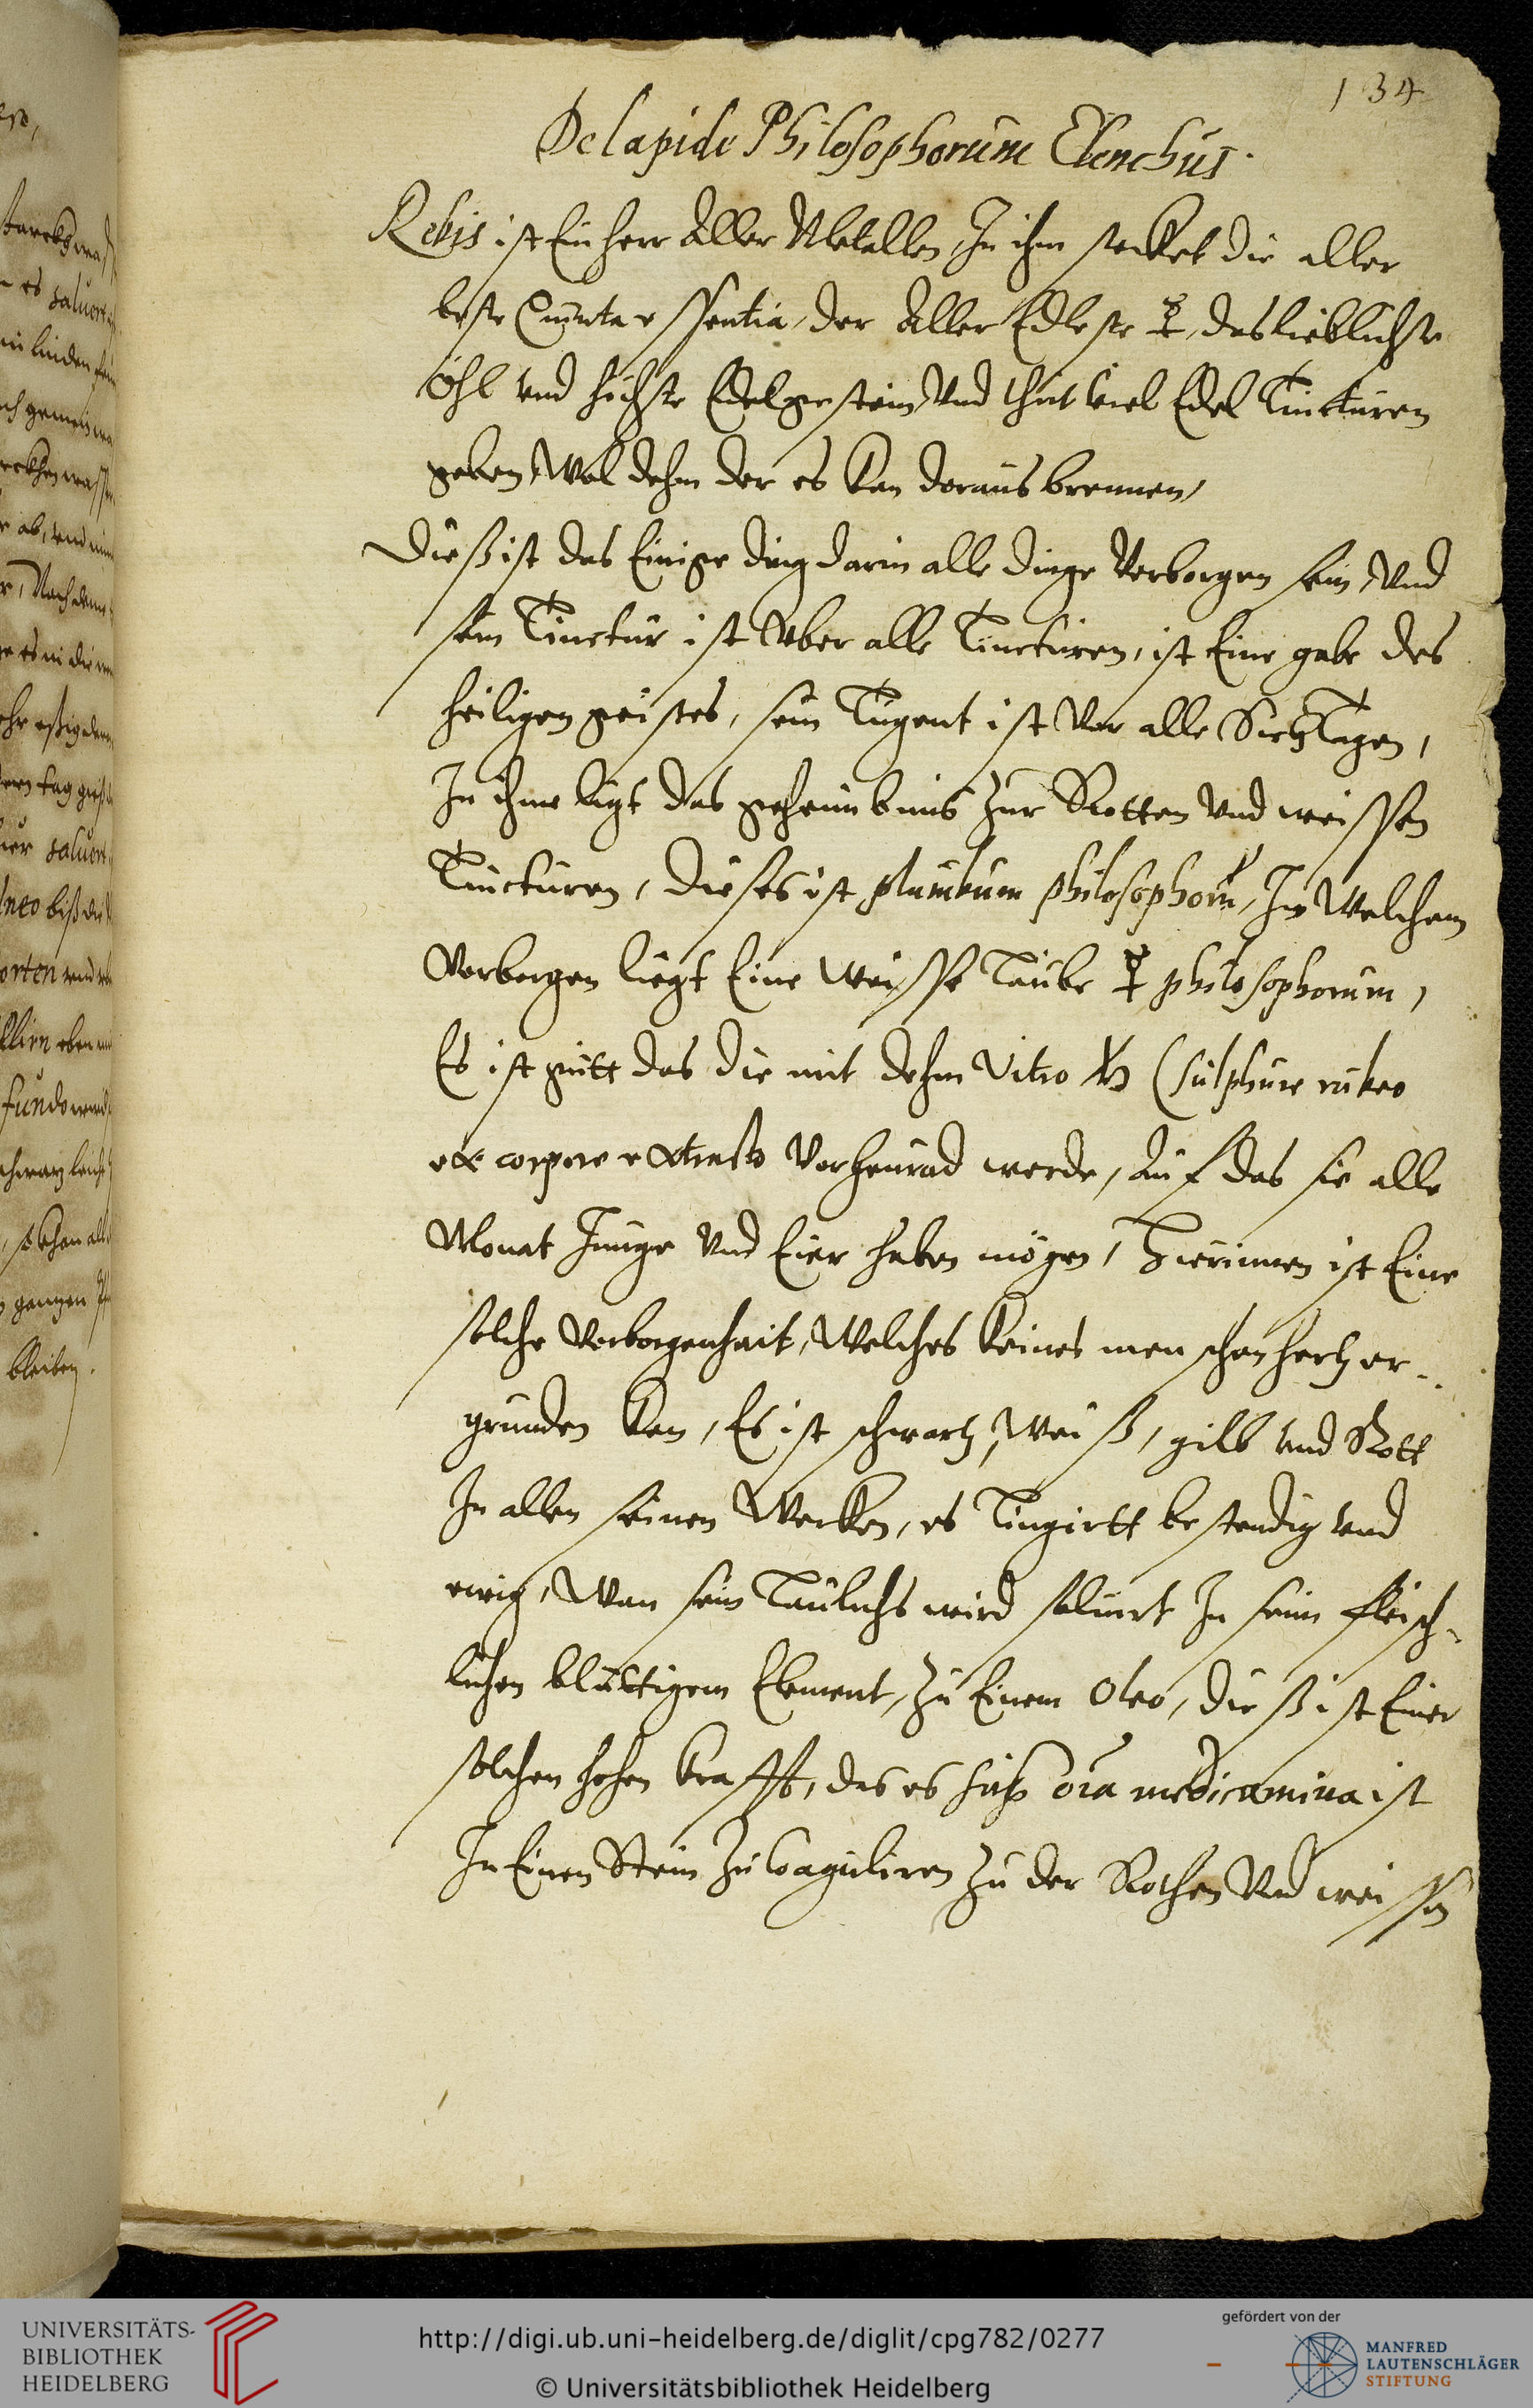 134
De lapide Philosophorum Elenchus.
Rebis ist Ein herr Aller Metallen, In ihm stecket die aller
beste Quinta essentia, der Aller Edleste ☿, das lieblichste
öhl vnd höchste Edelgestein, Vnd thut viel Edel Tincturen
geben, Wol dehm der es kan daraus brennen,
Dieß ist das Einige ding darin alle dinge Verborgen sein, Vnd
sein Tinctur ist Vber alle Tincturen, ist Eine gabe des
heiligen geistes, sein Tugent ist Vor alle Siechtagen,
In ihme ligt das geheimbnis Zur Rotten Vnd weissen
Tincturen, dieses ist plumbum philosophorū, In Welchem
Verborgen liegt Eine Weisse Taube ☿ philosophorum,
Es ist gutt das die mit dehm Vitro ♁ (sulphure rubeo
ex corpore extracto Verheurad werde, Auf das sie alle
Monat Junge Vnd Eier haben mögen, Hierinnen ist Eine
solche Verborgenheit, Welches keines menschen hertz er-
grunden kan, Es ist schwartz, Weiß, gilb vnd Rott
In allen seinen Wercken, es Tingirtt bestendig vnd
ewig, Wan sein wird soluirt In seim fleisch-
lichen bluttigem Element, Zu Einem Oleo, dieß ist Einer
solchen hohen krafft, das es oīa medicamina ist
In Einen Stein Zu Coaguliren Zu der Rothen Vnd weissen
saluert
linden
gemein
ab, vnd
Nach
es in die
tag
saluert
neo biß
orten vnd
fundo
schwartz
gantzen
bleiben.
UNIVERSITÄTS-
BIBLIOTHEK
HEIDELBERG
http://digi.ub.uni-heidelberg.de/diglit/cpg782/0277
© Universitätsbibliothek Heidelberg
gefördert von der
MANFRED
LAUTENSCHLÄGER
STIFTUNG